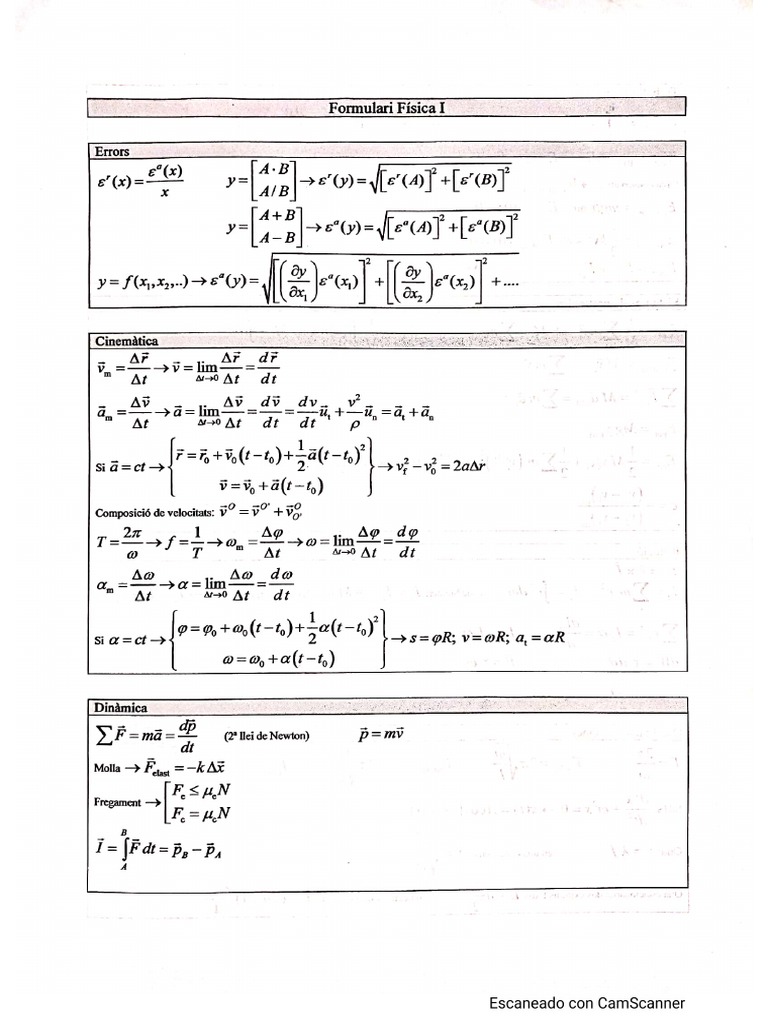 Formulari Física I
Errors
εʳ(x) = εᵃ(x) / x    y = [A·B; A/B] → εʳ(y) = √([εʳ(A)]² + [εʳ(B)]²)
y = [A+B; A−B] → εᵃ(y) = √([εᵃ(A)]² + [εᵃ(B)]²)
y = f(x₁,x₂,..) → εᵃ(y) = √([(∂y/∂x₁) εᵃ(x₁)]² + [(∂y/∂x₂) εᵃ(x₂)]² + ....
Cinemàtica
v⃗ₘ = Δr⃗/Δt → v⃗ = lim_{Δt→0} Δr⃗/Δt = dr⃗/dt
a⃗ₘ = Δv⃗/Δt → a⃗ = lim_{Δt→0} Δv⃗/Δt = dv⃗/dt = dv/dt u⃗ₜ + v²/ρ u⃗ₙ = a⃗ₜ + a⃗ₙ
Si a⃗ = ct → { r⃗ = r⃗₀ + v⃗₀(t − t₀) + 1/2 a⃗(t − t₀)²
v⃗ = v⃗₀ + a⃗(t − t₀) } → v_f² − v₀² = 2aΔr
Composició de velocitats: v⃗^O = v⃗^O' + v⃗^O_O'
T = 2π/ω → f = 1/T → ωₘ = Δφ/Δt → ω = lim_{Δt→0} Δφ/Δt = dφ/dt
αₘ = Δω/Δt → α = lim_{Δt→0} Δω/Δt = dω/dt
Si α = ct → { φ = φ₀ + ω₀(t − t₀) + 1/2 α(t − t₀)²
ω = ω₀ + α(t − t₀) } → s = φR; v = ωR; aₜ = αR
Dinàmica
∑F⃗ = ma⃗ = dp⃗/dt (2ª llei de Newton) p⃗ = mv⃗
Molla → F⃗_elast = −k Δx⃗
Fregament → [ F_e ≤ μ_e N
F_c = μ_c N
I⃗ = ∫_A^B F⃗ dt = p⃗_B − p⃗_A
Escaneado con CamScanner